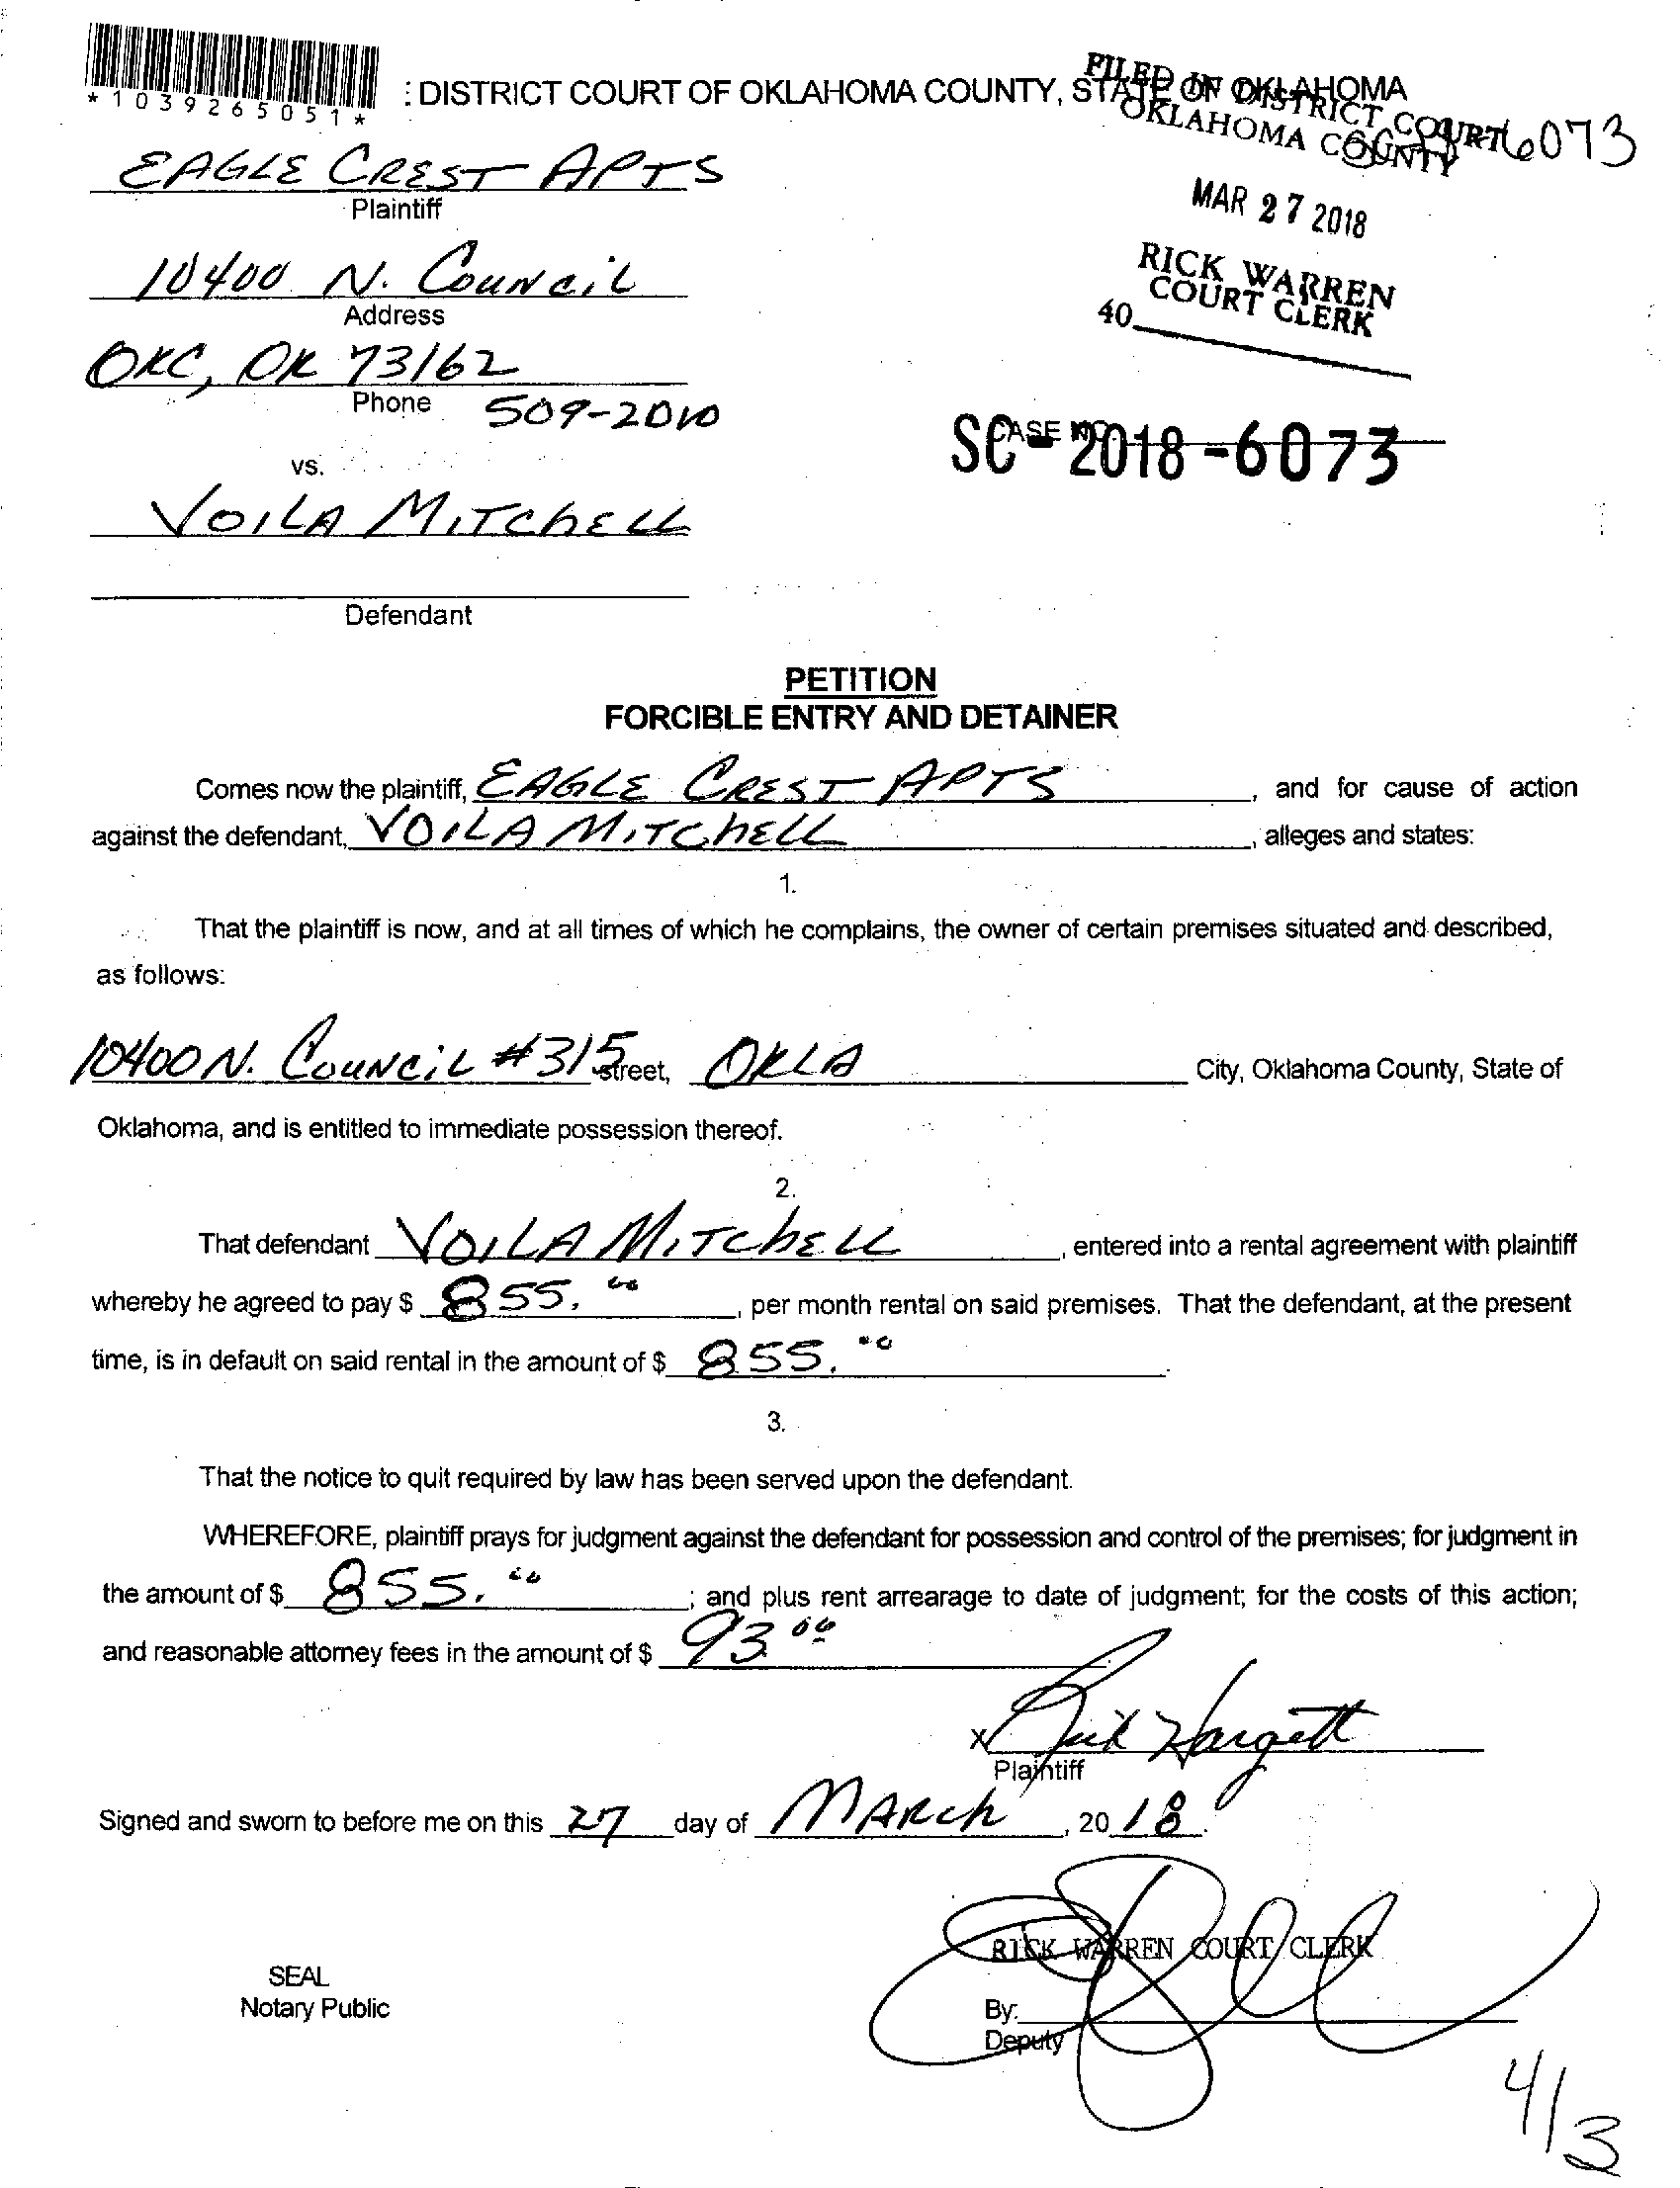 *1039265051*
: DISTRICT COURT OF OKLAHOMA COUNTY, STATE OF OKLAHOMA
FILED IN DISTRICT COURT
OKLAHOMA COUNTY
6073
EAGLE CREST APTS
Plaintiff
MAR 27 2018
10400 N. COUNCIL
Address
RICK WARREN
COURT CLERK
40
OKC, OK 73162
Phone 509-2010
CASE NO.
SC-2018-6073
vs.
VOILA MITCHELL
Defendant
PETITION
FORCIBLE ENTRY AND DETAINER
Comes now the plaintiff, EAGLE CREST APTS, and for cause of action
against the defendant, VOILA MITCHELL, alleges and states:
1.
That the plaintiff is now, and at all times of which he complains, the owner of certain premises situated and described,
as follows:
10400 N. COUNCIL #315 Street, OKLA City, Oklahoma County, State of
Oklahoma, and is entitled to immediate possession thereof.
2.
That defendant VOILA MITCHELL, entered into a rental agreement with plaintiff
whereby he agreed to pay $ 855.00, per month rental on said premises. That the defendant, at the present
time, is in default on said rental in the amount of $ 855.00.
3.
That the notice to quit required by law has been served upon the defendant.
WHEREFORE, plaintiff prays for judgment against the defendant for possession and control of the premises; for judgment in
the amount of $ 855.00; and plus rent arrearage to date of judgment; for the costs of this action;
and reasonable attorney fees in the amount of $ 93 00
x Rick Hargett
Plaintiff
Signed and sworn to before me on this 27 day of MARCH, 20 18.
RICK WARREN COURT CLERK
SEAL
Notary Public
By:
Deputy
4/3